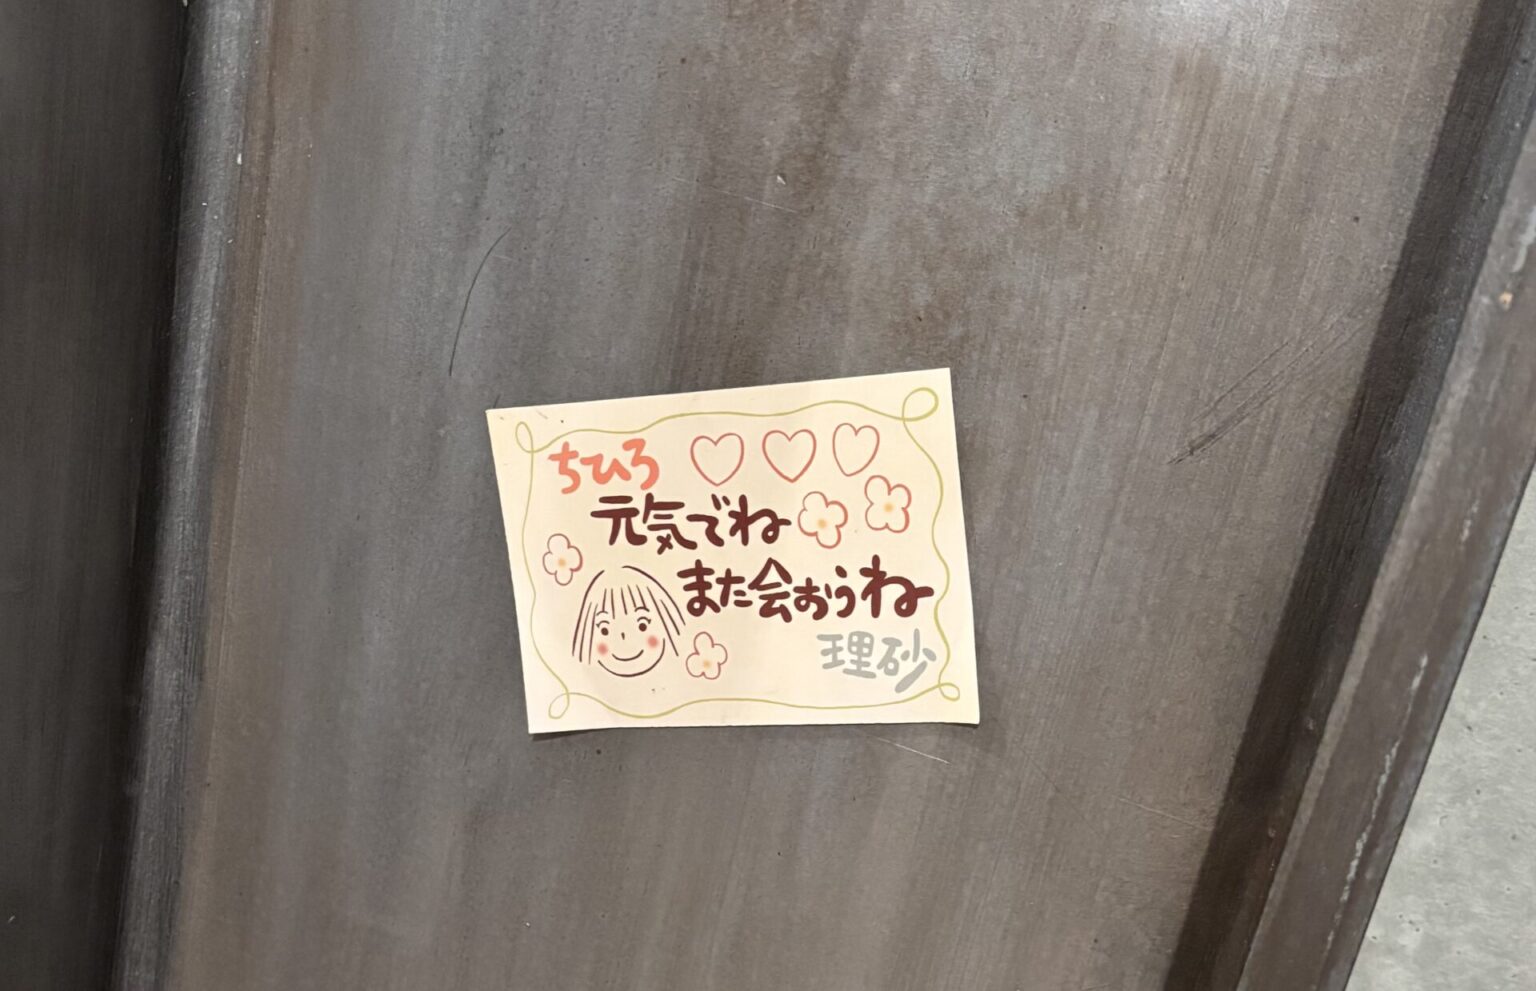 ちひろ
元気でね
また会おうね
理砂